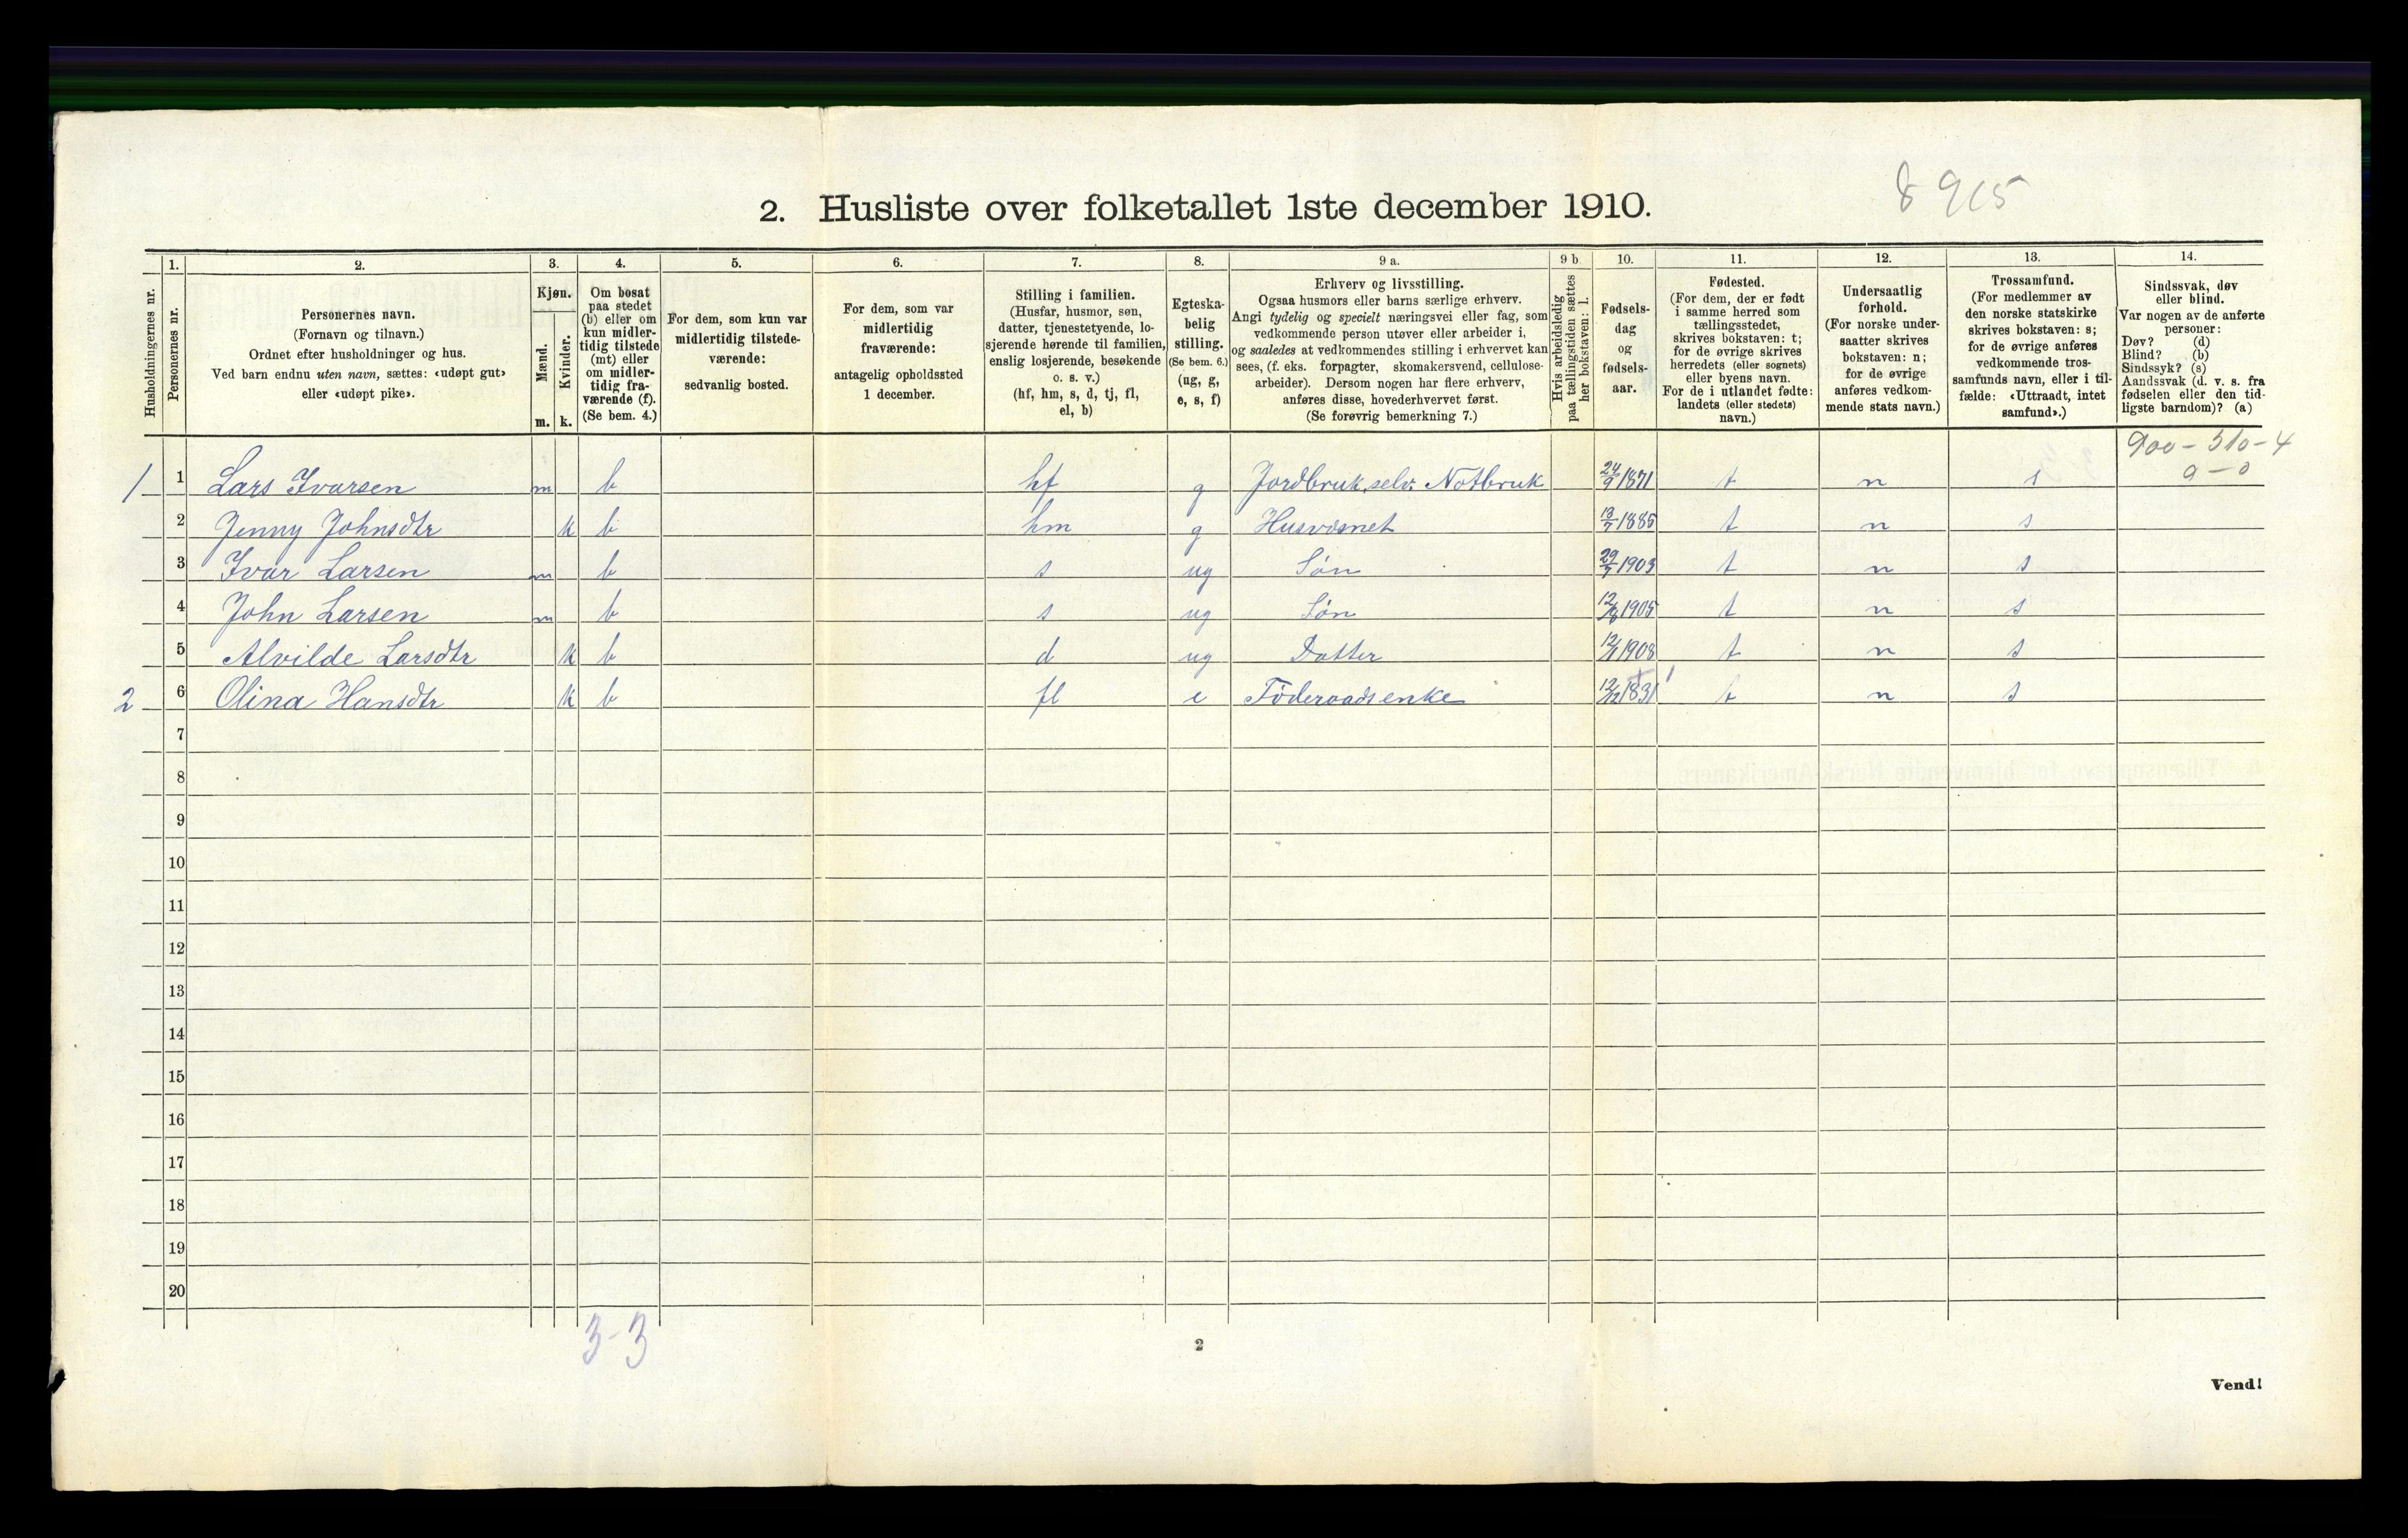 8 915
2. Husliste over folketallet 1ste december 1910.
Husholdningernes nr.
1. Personernes nr.
2. Personernes navn. (Fornavn og tilnavn.) Ordnet efter husholdninger og hus. Ved barn endnu uten navn, sættes: «udøpt gut» eller «udøpt pike».
3. Kjøn. Mænd. m. Kvinder. k.
4. Om bosat paa stedet (b) eller om kun midlertidig tilstede (mt) eller om midlertidig fraværende (f). (Se bem. 4.)
5. For dem, som kun var midlertidig tilstedeværende: sedvanlig bosted.
6. For dem, som var midlertidig fraværende: antagelig opholdssted 1 december.
7. Stilling i familien. (Husfar, husmor, søn, datter, tjenestetyende, losjerende hørende til familien, enslig losjerende, besøkende o. s. v.) (hf, hm, s, d, tj, fl, el, b)
8. Egteskabelig stilling. (Se bem. 6.) (ug, g, e, s, f)
9 a. Erhverv og livsstilling. Ogsaa husmors eller barns særlige erhverv. Angi tydelig og specielt næringsvei eller fag, som vedkommende person utøver eller arbeider i, og saaledes at vedkommendes stilling i erhvervet kan sees, (f. eks. forpagter, skomakersvend, cellulosearbeider). Dersom nogen har flere erhverv, anføres disse, hovederhvervet først. (Se forøvrig bemerkning 7.)
9 b. Hvis arbeidsledig paa tællingstiden sættes her bokstaven: l.
10. Fødselsdag og fødselsaar.
11. Fødested. (For dem, der er født i samme herred som tællingsstedet, skrives bokstaven: t; for de øvrige skrives herredets (eller sognets) eller byens navn. For de i utlandet fødte: landets (eller stedets) navn.)
12. Undersaatlig forhold. (For norske undersaatter skrives bokstaven: n; for de øvrige anføres vedkommende stats navn.)
13. Trossamfund. (For medlemmer av den norske statskirke skrives bokstaven: s; for de øvrige anføres vedkommende trossamfunds navn, eller i tilfælde: «Uttraadt, intet samfund».)
14. Sindssvak, døv eller blind. Var nogen av de anførte personer: Døv? (d) Blind? (b) Sindssyk? (s) Aandssvak (d. v. s. fra fødselen eller den tidligste barndom)? (a)
900 - 510 - 4
0 - 0
1 1 Lars Ivarsen m b hf g Jordbruk, selv. Notbruk 24/9 1871 t n s
2 Jenny Johnsdtr k b hm g Husvæsnet 13/7 1885 t n s
3 Ivar Larsen m b s ug Søn 29/7 1903 t n s
4 John Larsen m b s ug Søn 1905 t n s
5 Alvilde Larsdtr k b d ug Datter 1908 t n s
2 6 Olina Hansdtr k b fl e Föderaadsenke 12/12 1831 t n s
7
8
9
10
11
12
13
14
15
16
17
18
19
20
3-3
2
Vend!